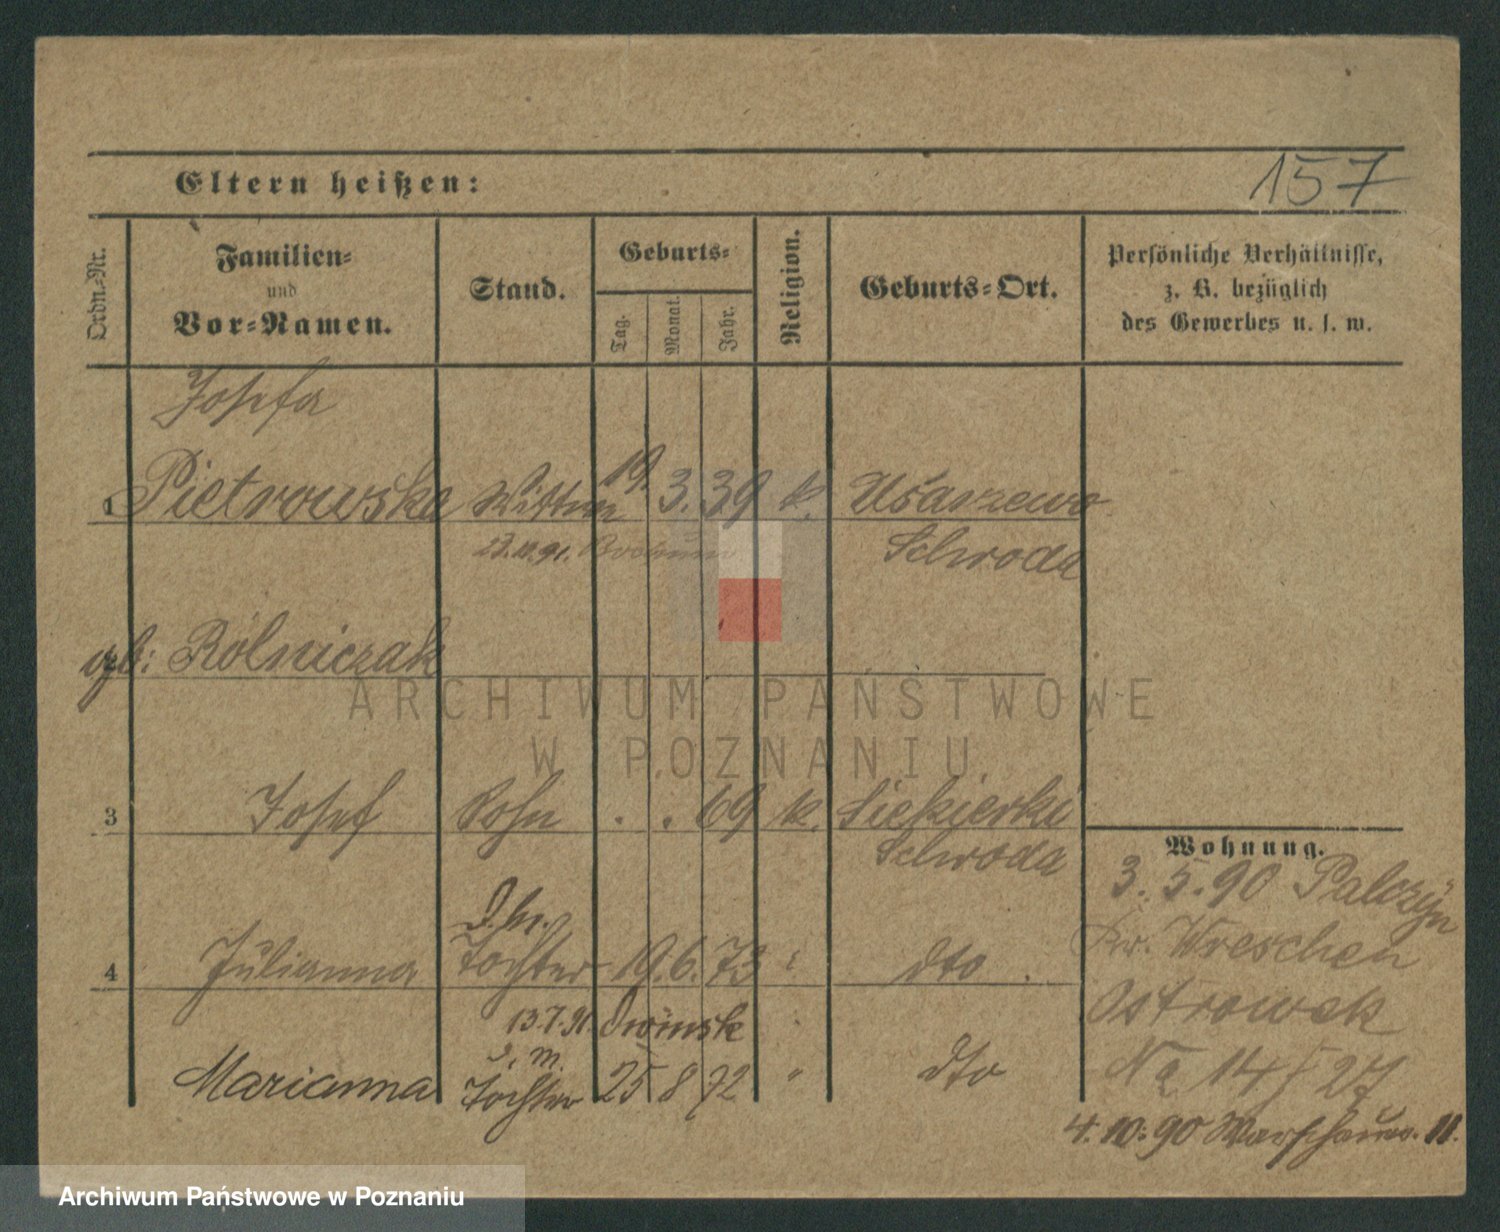 157
Eltern heißen:
Ordn.-Nr.
Familien-
und
Vor-Namen.
Stand.
Geburts-
Tag.
Monat.
Jahr.
Religion.
Geburts-Ort.
Persönliche Verhältnisse,
z. B. bezüglich
des Gewerbes u. s. w.
Josefa
1 Pietrowska Wittwe 19. 3. 39 k. Usarzewo
23.10.91. Bochum Schroda
geb: Rólniczak
ARCHIWUM PAŃSTWOWE
W POZNANIU
3 Josef Sohn . . 69 k. Siekierki
Schroda
Wohnung.
3. 5. 90 Palczyn
Kr. Wreschen
Ostrowek
No 14/27
4. 10. 90 Warschauer. 11.
4 Julianna Tochter 19. 6. 73 " dto
13.7.91. Owinsk
Marianna Tochter 25 8 72 " dto
Archiwum Państwowe w Poznaniu